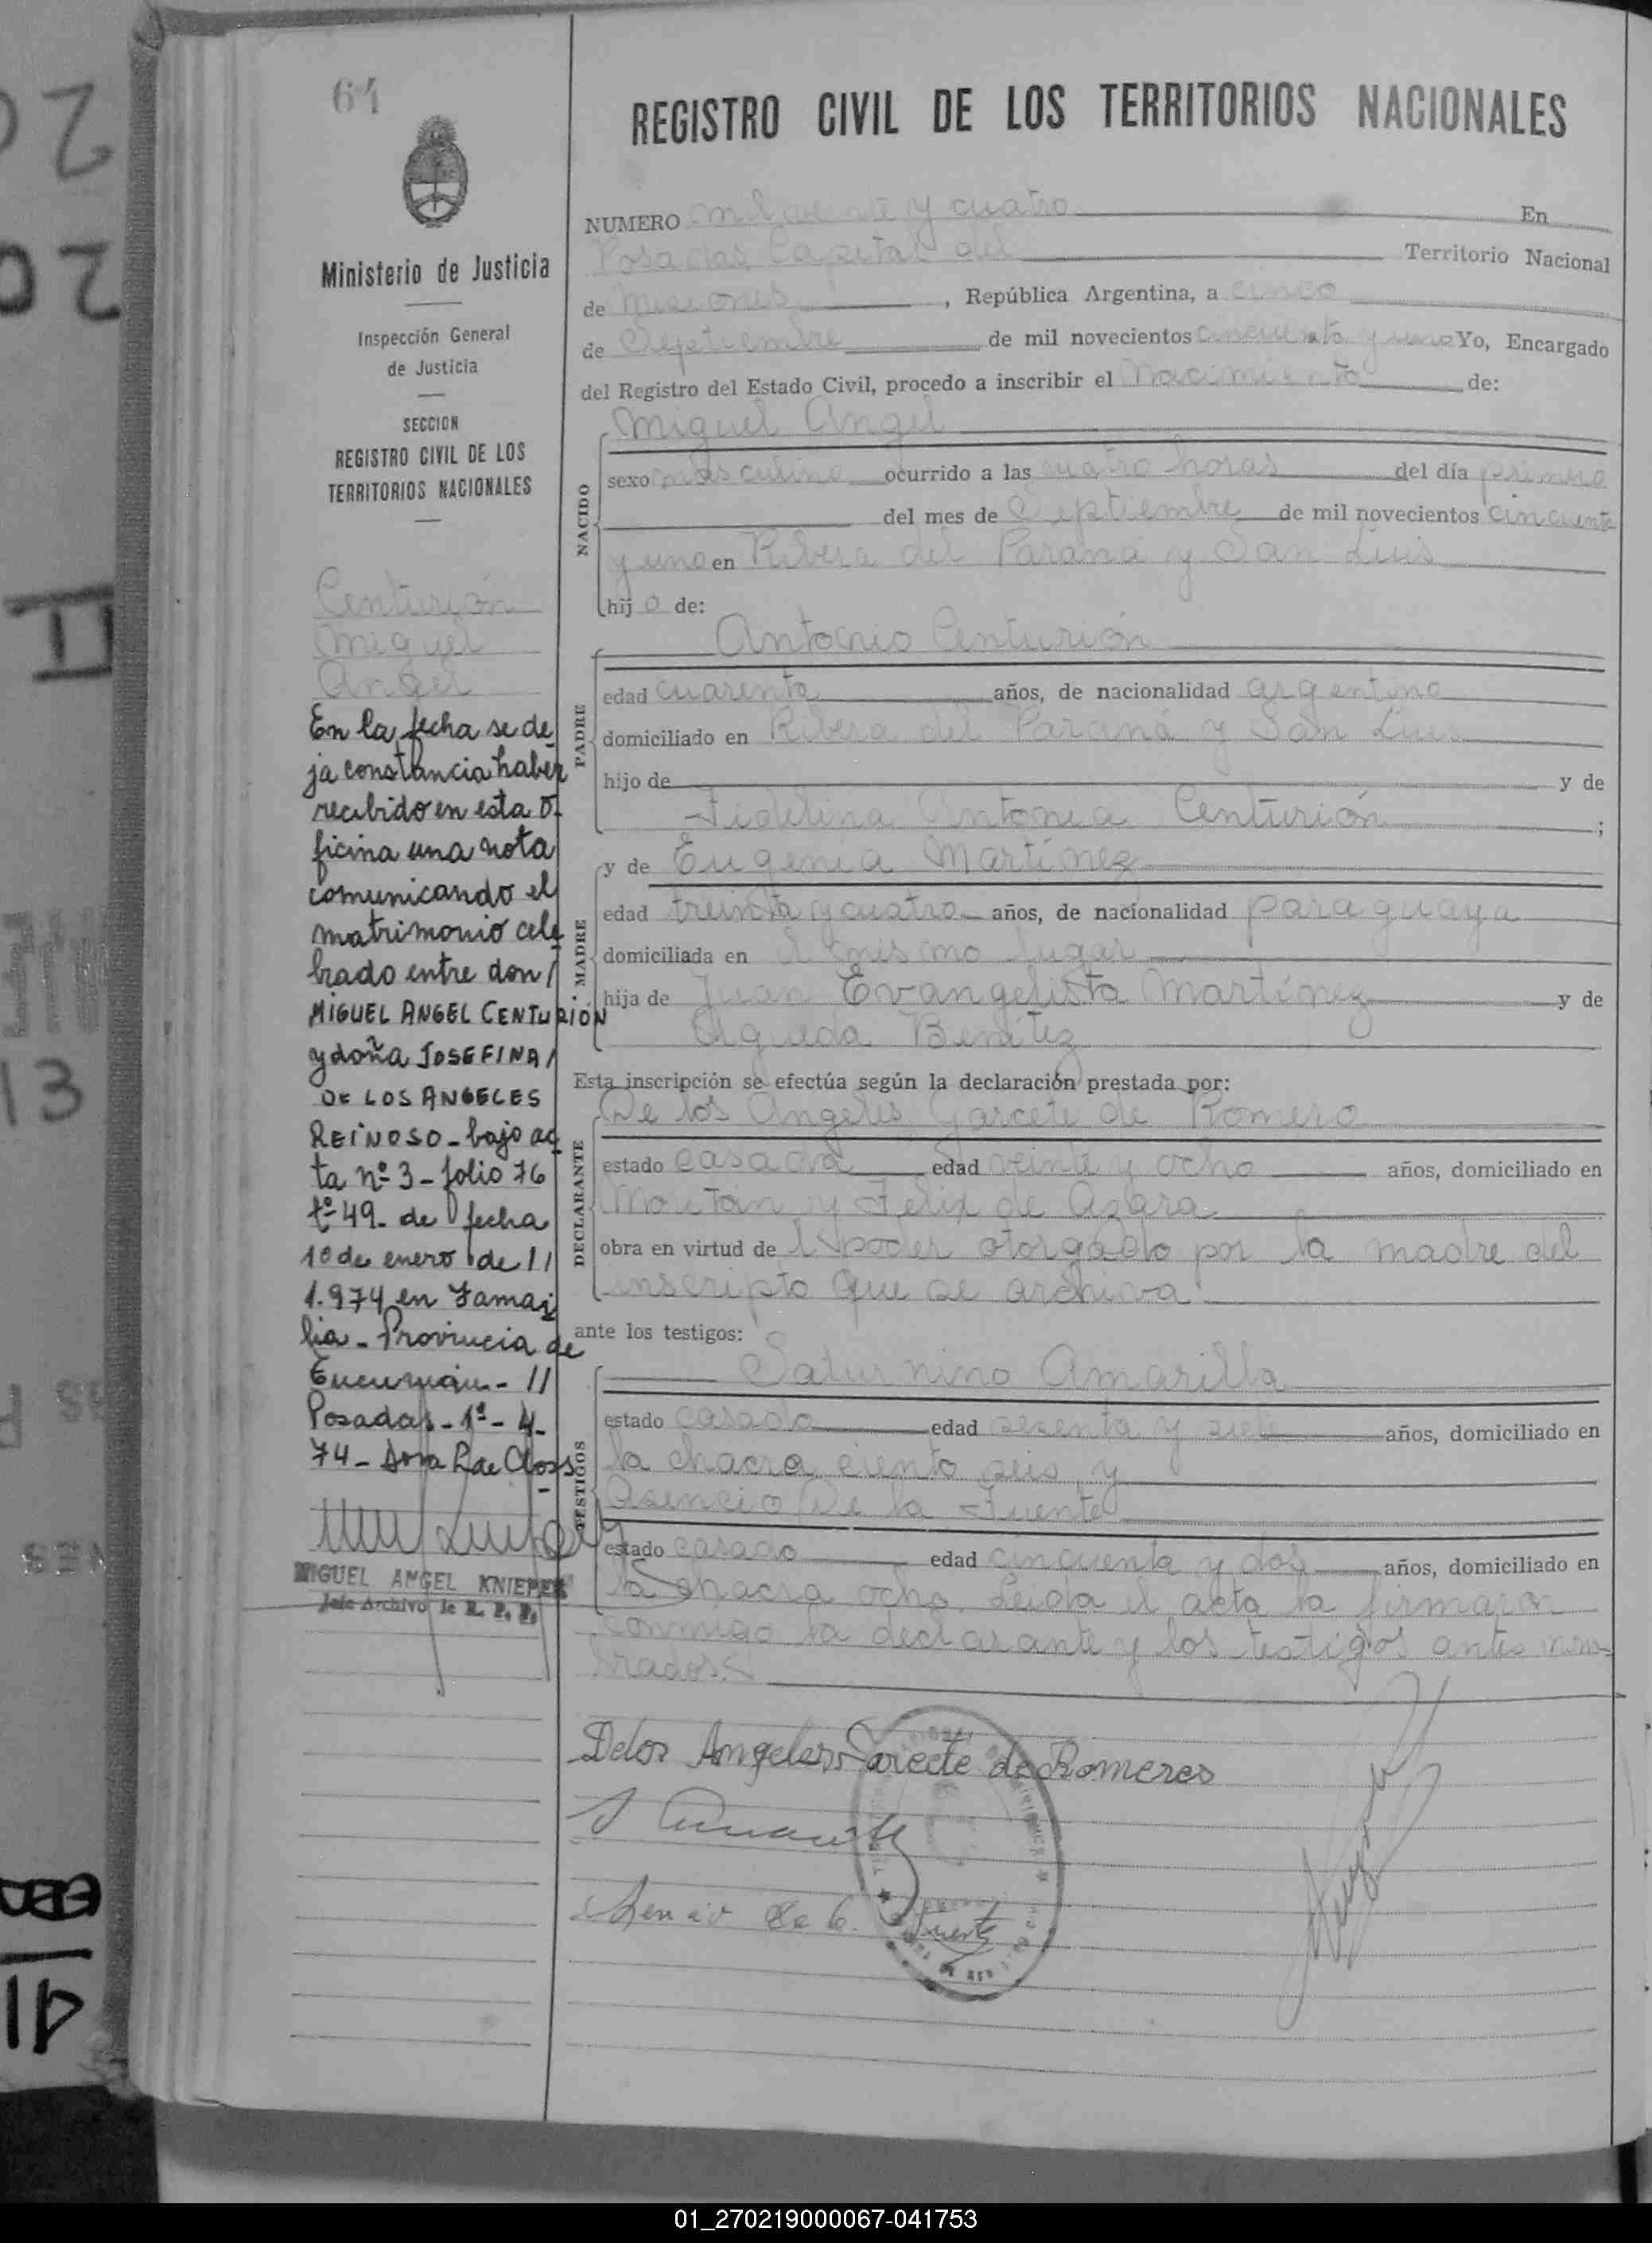 64
REGISTRO CIVIL DE LOS TERRITORIOS NACIONALES
Ministerio de Justicia
Inspección General
de Justicia
SECCION
REGISTRO CIVIL DE LOS
TERRITORIOS NACIONALES
Centurión
Miguel
Angel
En la fecha se de
ja constancia haber
recibido en esta O
ficina una nota
comunicando el
matrimonio cele
brado entre don /
MIGUEL ANGEL CENTURIÓN
y doña JOSEFINA /
DE LOS ANGELES
REINOSO - bajo ac
ta nº 3 - folio 76
tº 49 - de fecha
10 de enero de //
1.974 en Famai
lla - Provincia de
Tucumán - //
Posadas - 1º - 4 -
74 - Dora R de Closs
MIGUEL ANGEL KNIEPER
Jefe Archivo de R. P. P.
NUMERO mil veinte y cuatro En
Posadas Capital del Territorio Nacional
de Misiones, República Argentina, a cinco
de Septiembre de mil novecientos cincuenta y uno Yo, Encargado
del Registro del Estado Civil, procedo a inscribir el Nacimiento de:
NACIDO
Miguel Angel
sexo masculino ocurrido a las cuatro horas del día primero
del mes de Septiembre de mil novecientos cincuenta
y uno en Ribera del Paraná y San Luis
hijo de:
PADRE
Antonio Centurión
edad cuarenta años, de nacionalidad argentino
domiciliado en Ribera del Paraná y San Luis
hijo de y de
Fidelina Antonia Centurión ;
MADRE
y de Eugenia Martínez
edad treinta y cuatro años, de nacionalidad paraguaya
domiciliada en el mismo lugar
hija de Juan Evangelista Martínez y de
Agueda Benítez
Esta inscripción se efectúa según la declaración prestada por:
DECLARANTE
De los Angeles Garcete de Romero
estado casada edad veinte y ocho años, domiciliado en
y Felix de Azara
obra en virtud del poder otorgado por la madre del
inscripto que se archiva
ante los testigos:
TESTIGOS
Saturnino Amarilla
estado casado edad sesenta y siete años, domiciliado en
la chacra ciento seis y
Asencio De la Fuente
estado casado edad cincuenta y dos años, domiciliado en
la chacra ocho. Leida el acta la firmaron
conmigo la declarante y los testigos antes nom-
brados.
Delos Angeles Garcete de Romeros
S Amarilla
01_270219000067-041753